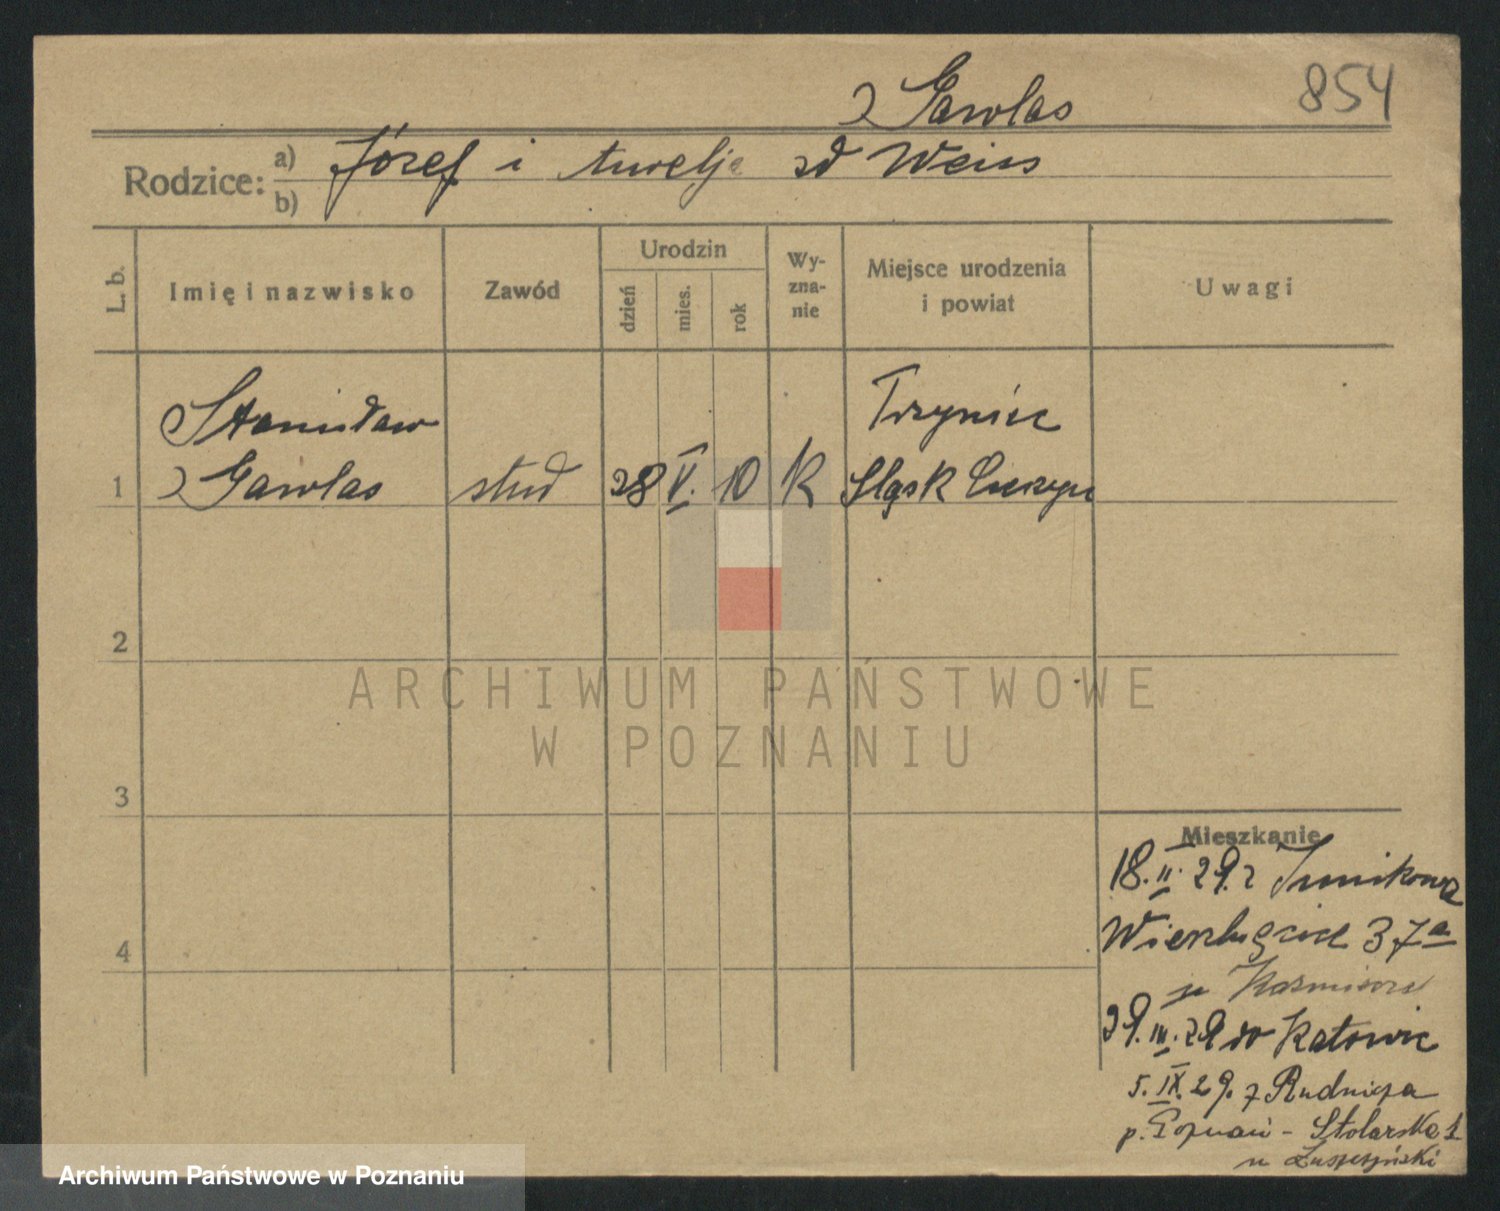 Gawlas
854
Rodzice: a) Józef i Aurelja zd Weiss
b)
L. b. Imię i nazwisko Zawód Urodzin dzień mies. rok Wyzna-nie Miejsce urodzenia i powiat Uwagi
Stanisław Trzyniec
1 Gawlas stud 28 V. 10 k Śląsk Cieszyn
2
ARCHIWUM PAŃSTWOWE
W POZNANIU
3
Mieszkanie
18. II. 29. z Junikowa
4 Wierzbięcice 37a
Kaźmierz
29. III. 29 do Katowic
5. IX. 29. z Rudnicza
p. Poznań - Stolarska 1
u
Archiwum Państwowe w Poznaniu